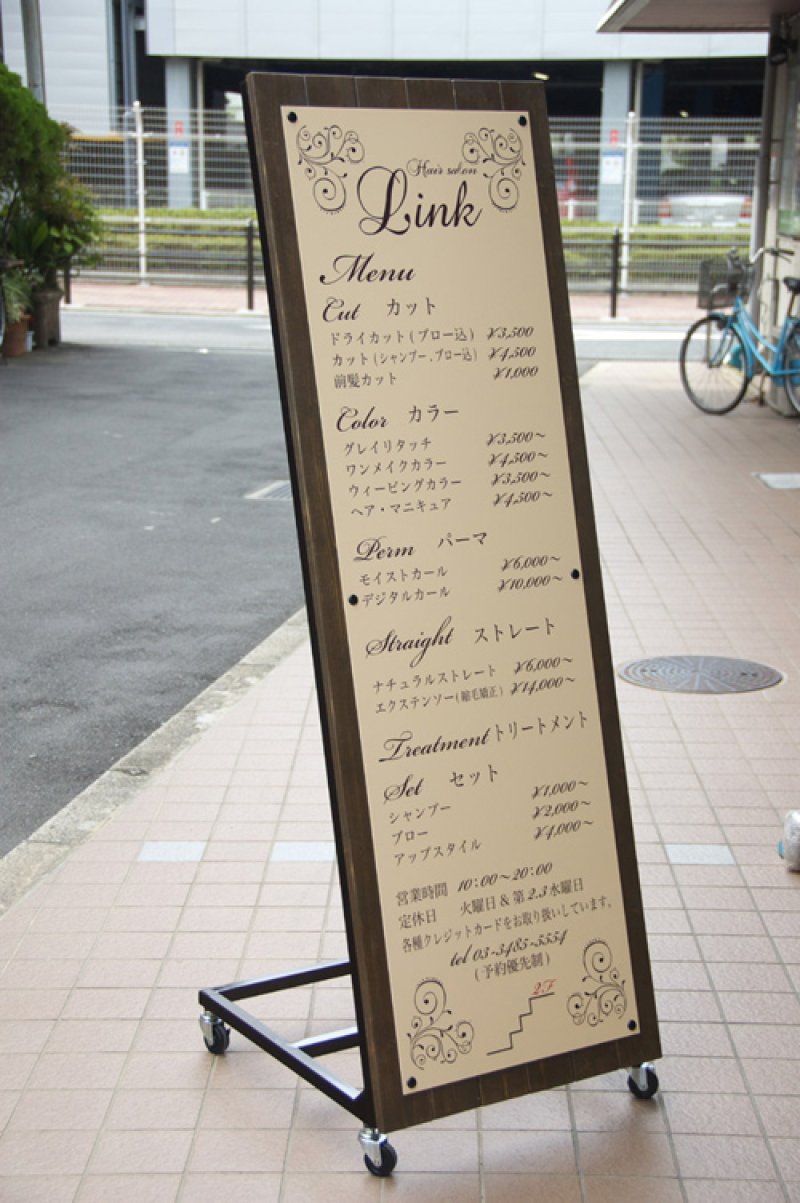 Hair salon
Link
Menu
Cut カット
ドライカット(ブロー込) ¥3,500
カット(シャンプー、ブロー込) ¥4,500
前髪カット ¥1,000
Color カラー
グレイリタッチ ¥3,500～
ワンメイクカラー ¥4,500～
ウィービングカラー ¥3,500～
ヘア・マニキュア ¥4,500～
Perm パーマ
モイストカール ¥6,000～
デジタルカール ¥10,000～
Straight ストレート
ナチュラルストレート ¥6,000～
エクステンソー(縮毛矯正) ¥14,000～
Treatment トリートメント
Set セット
シャンプー ¥1,000～
ブロー ¥2,000～
アップスタイル ¥4,000～
営業時間 10:00～20:00
定休日 火曜日&第2.3水曜日
各種クレジットカードをお取り扱いしています。
tel 03-3485-5554
(予約優先制)
2F